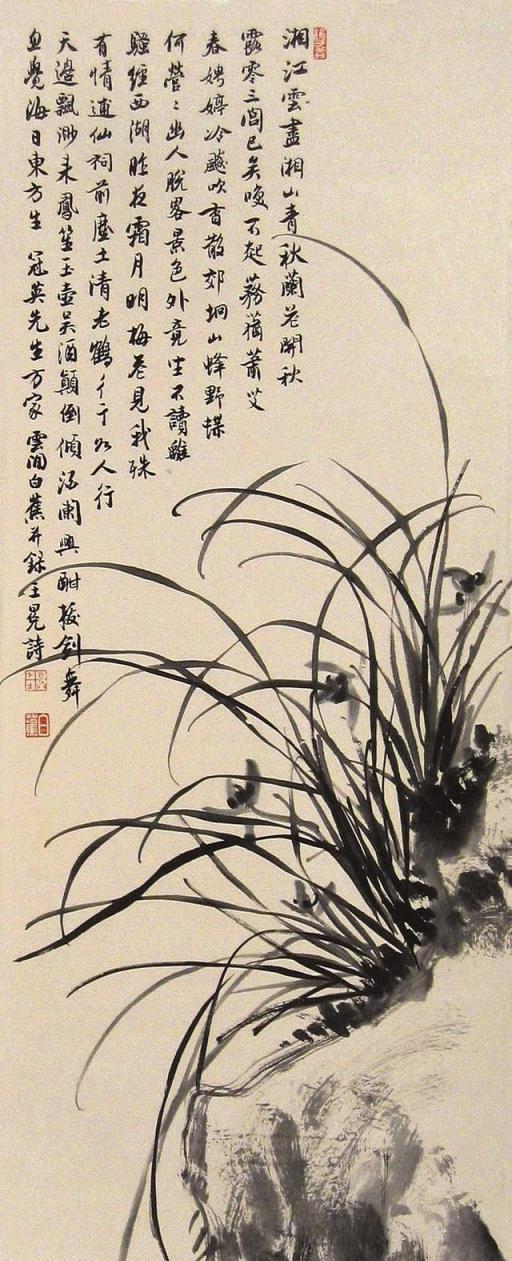 湘江雲盡湘山青秋蘭花開秋
露零三閭已矣喚不起蕭艾
春娉婷冷飈吹香散郊坰山蜂野蝶
何營〻幽人脫畧景色外竟坐不讀離
騷經西湖昨夜霜月明梅花見我殊
有情逋仙祠前塵土清老鶴彳亍如人行
天邊飄渺來鳳笙玉壺吳酒顛倒傾酒闌興酣拔劍舞
忽覺海日東方生 冠英先生方家 雲間白蕉并録王冕詩